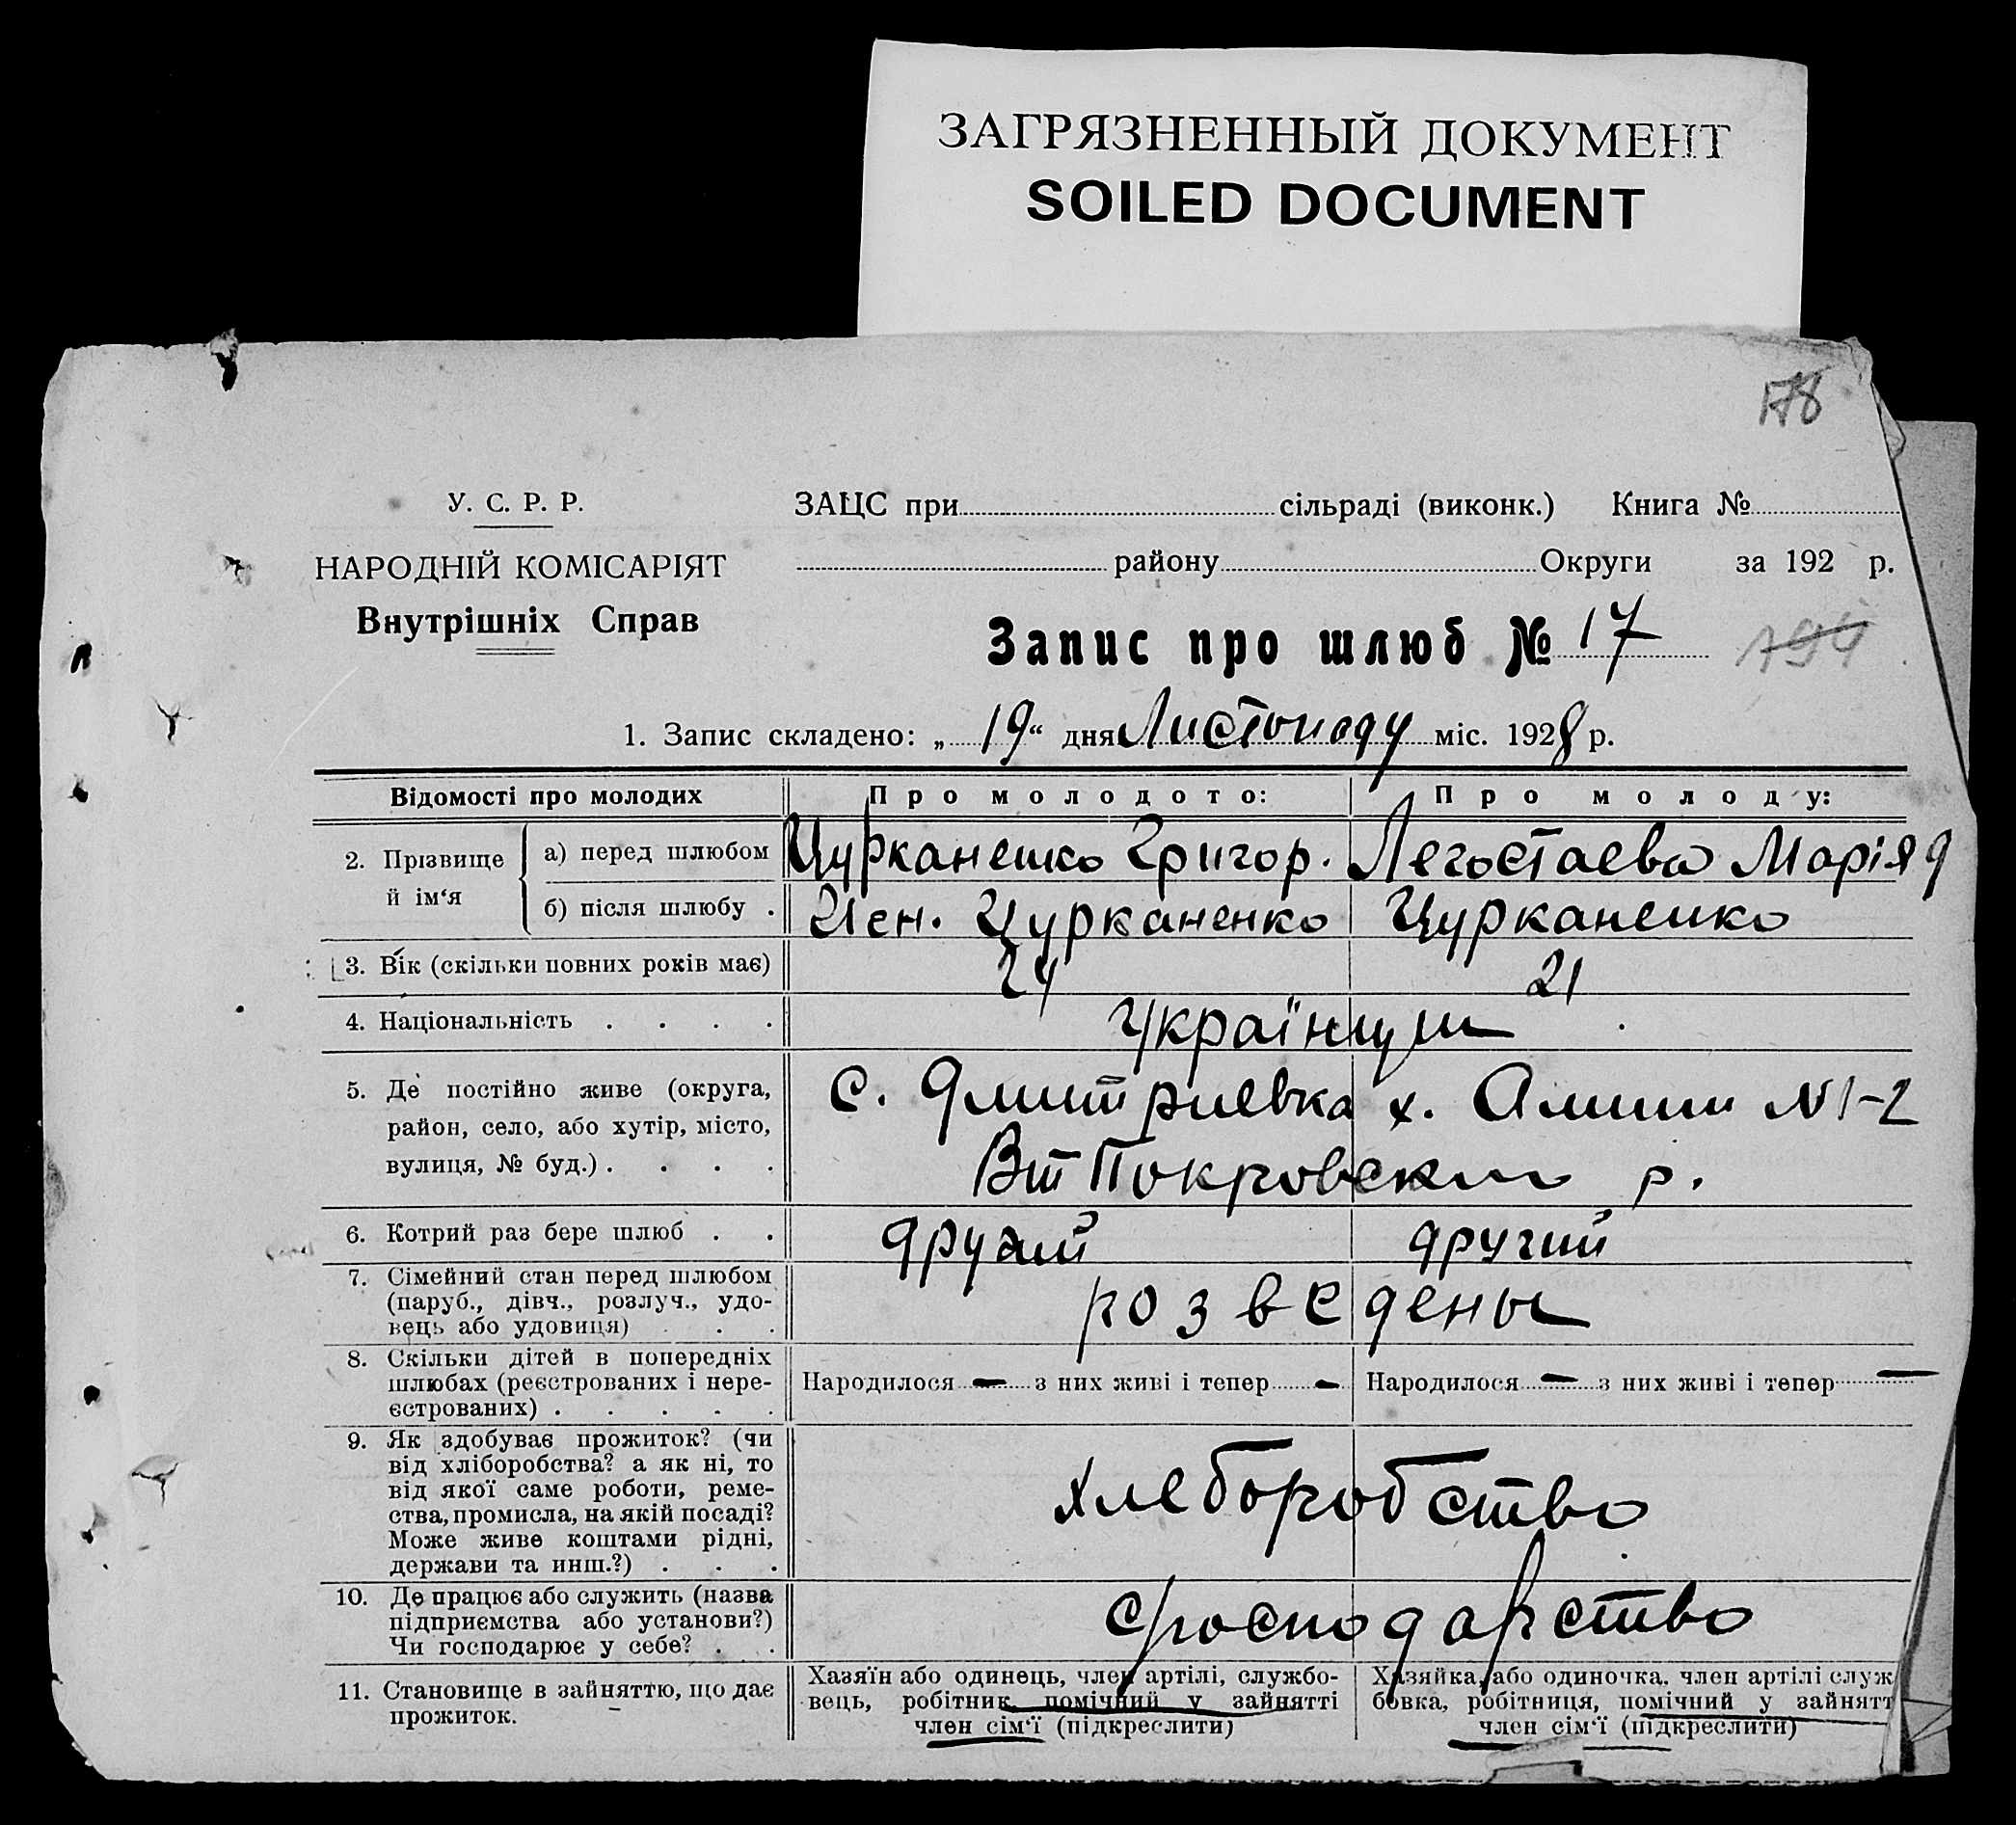 ЗАГРЯЗНЕННЫЙ ДОКУМЕНТ
SOILED DOCUMENT
178
У. С. Р. Р.
НАРОДНІЙ КОМІСАРІЯТ
Внутрішніх Справ
ЗАЦС при сільраді (виконк.) Книга №
району Округи за 192 р.
Запис про шлюб № 17
194
1. Запис складено: „ 19 “ дня Листопаду міс. 1928 р.
Відомості про молодих Про молодого: Про молоду:
2. Прізвище й ім‘я
а) перед шлюбом Цурканенко Григор. Легостаева Марія Д
б) після шлюбу . Исн. Цурканенко Цурканенко
3. Вік (скільки повних років має) 24 21
4. Національність . . . . Українци
5. Де постійно живе (округа,
район, село, або хутір, місто,
вулиця, № буд.) . . . .
с. Дмитриевка х. №1-2
Покровский р.
6. Котрий раз бере шлюб . . другий другий
7. Сімейний стан перед шлюбом
(паруб., дівч., розлуч., удо-
вець або удовиця) . . .
розведены
8. Скільки дітей в попередніх
шлюбах (реєстрованих і нере-
єстрованих) . . . . .
Народилося — з них живі і тепер —
Народилося — з них живі і тепер —
9. Як здобуває прожиток? (чи
від хліборобства? а як ні, то
від якої саме роботи, реме-
ства, промисла, на якій посаді?
Може живе коштами рідні,
держави та инш.?) . . .
хлеборобство
10. Де працює або служить (назва
підприємства або установи?)
Чи господарює у себе? . .
сгосподарство
11. Становище в зайняттю, що дає
прожиток.
Хазяїн або одинець, член артілі, службо-
вець, робітник, помічний у зайнятті
член сім‘ї (підкреслити)
Хазяйка, або одиночка, член артілі служ
бовка, робітниця, помічний у зайнятт
член сім‘ї (підкреслити)